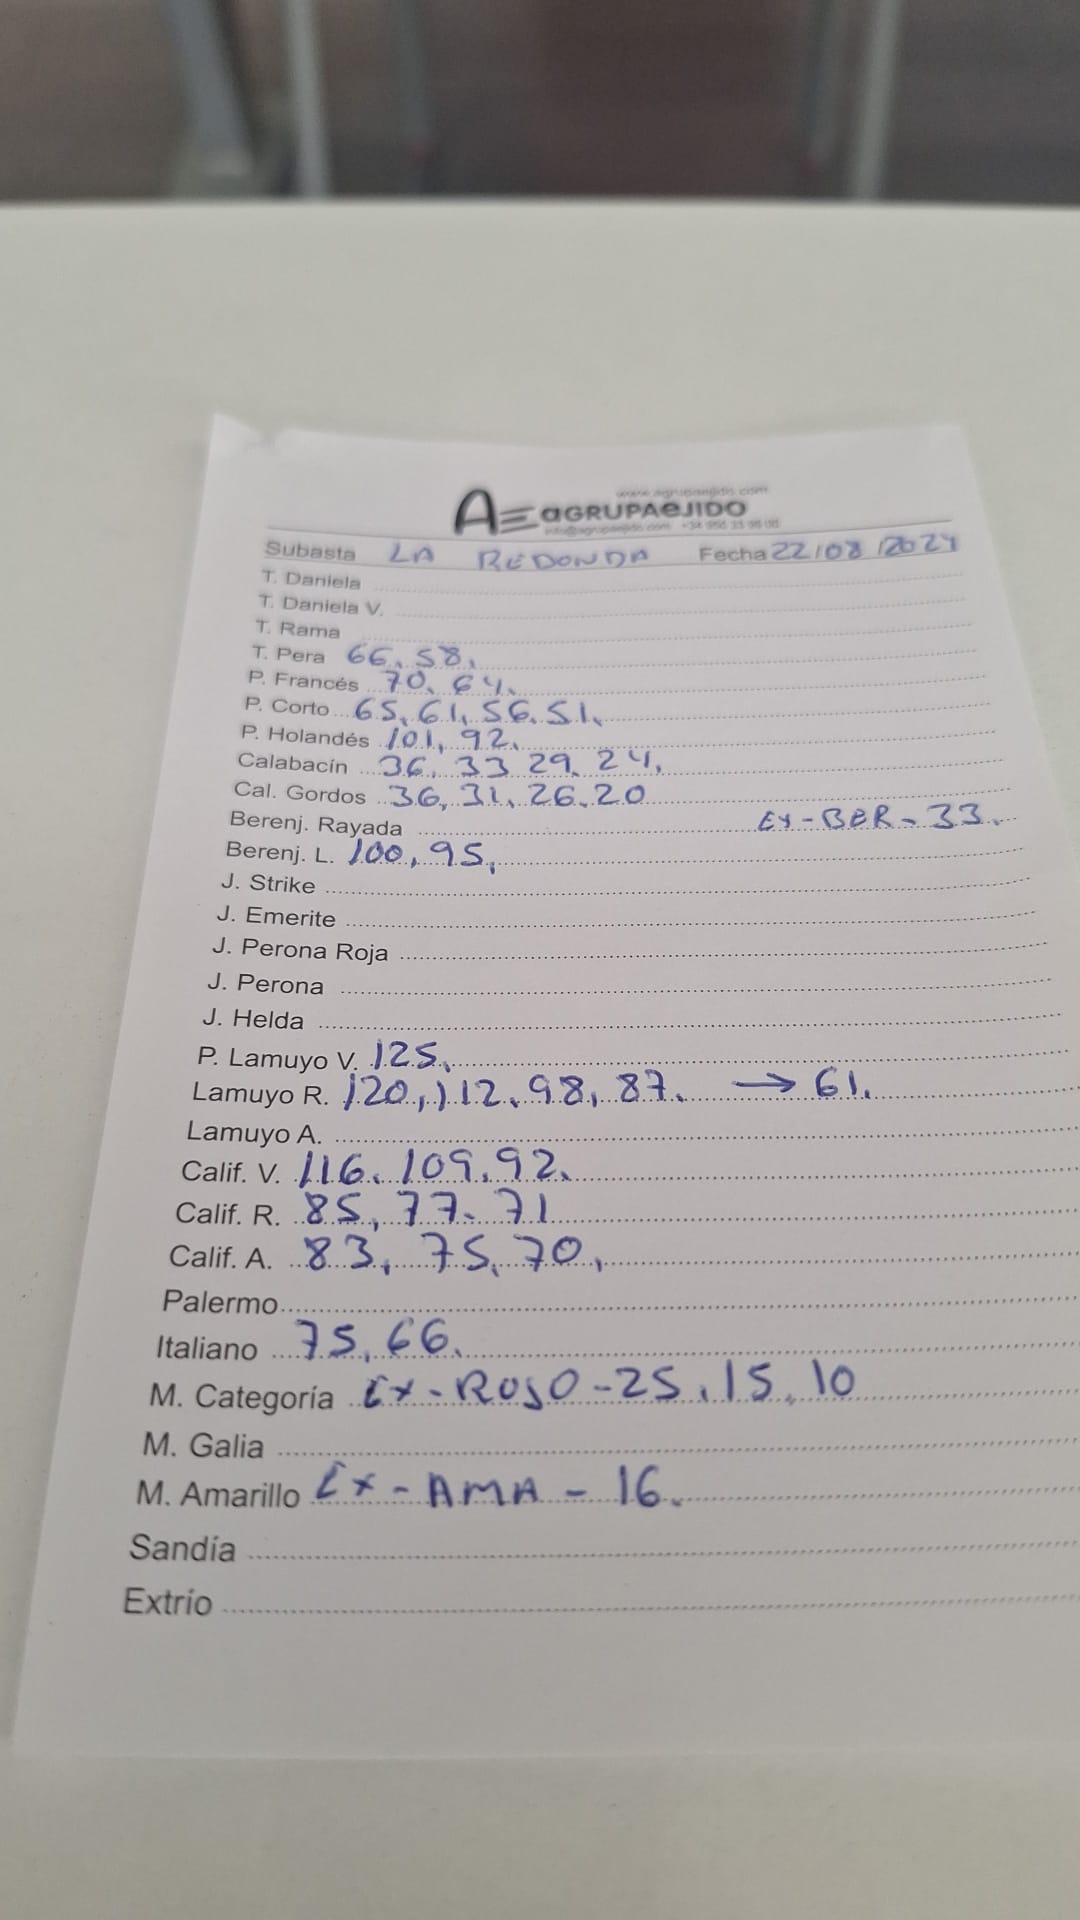 www.agrupaejido.com
AGRUPAEJIDO
info@agrupaejido.com
Subasta LA REDONDA Fecha 22/08/2024
T. Daniela
T. Daniela V.
T. Rama
T. Pera 66, 58,
P. Francés 70, 64,
P. Corto 65, 61, 56, 51,
P. Holandés 101, 92,
Calabacín 36, 33 29, 24,
Cal. Gordos 36, 31, 26, 20
Berenj. Rayada EX-BER-33.
Berenj. L. 100, 95,
J. Strike
J. Emerite
J. Perona Roja
J. Perona
J. Helda
P. Lamuyo V. 125,
Lamuyo R. 120, 112, 98, 87. → 61.
Lamuyo A.
Calif. V. 116, 109, 92,
Calif. R. 85, 77, 71
Calif. A. 83, 75, 70,
Palermo
Italiano 75, 66,
M. Categoría EX-ROJO-25, 15, 10
M. Galia
M. Amarillo EX-AMA-16.
Sandía
Extrío